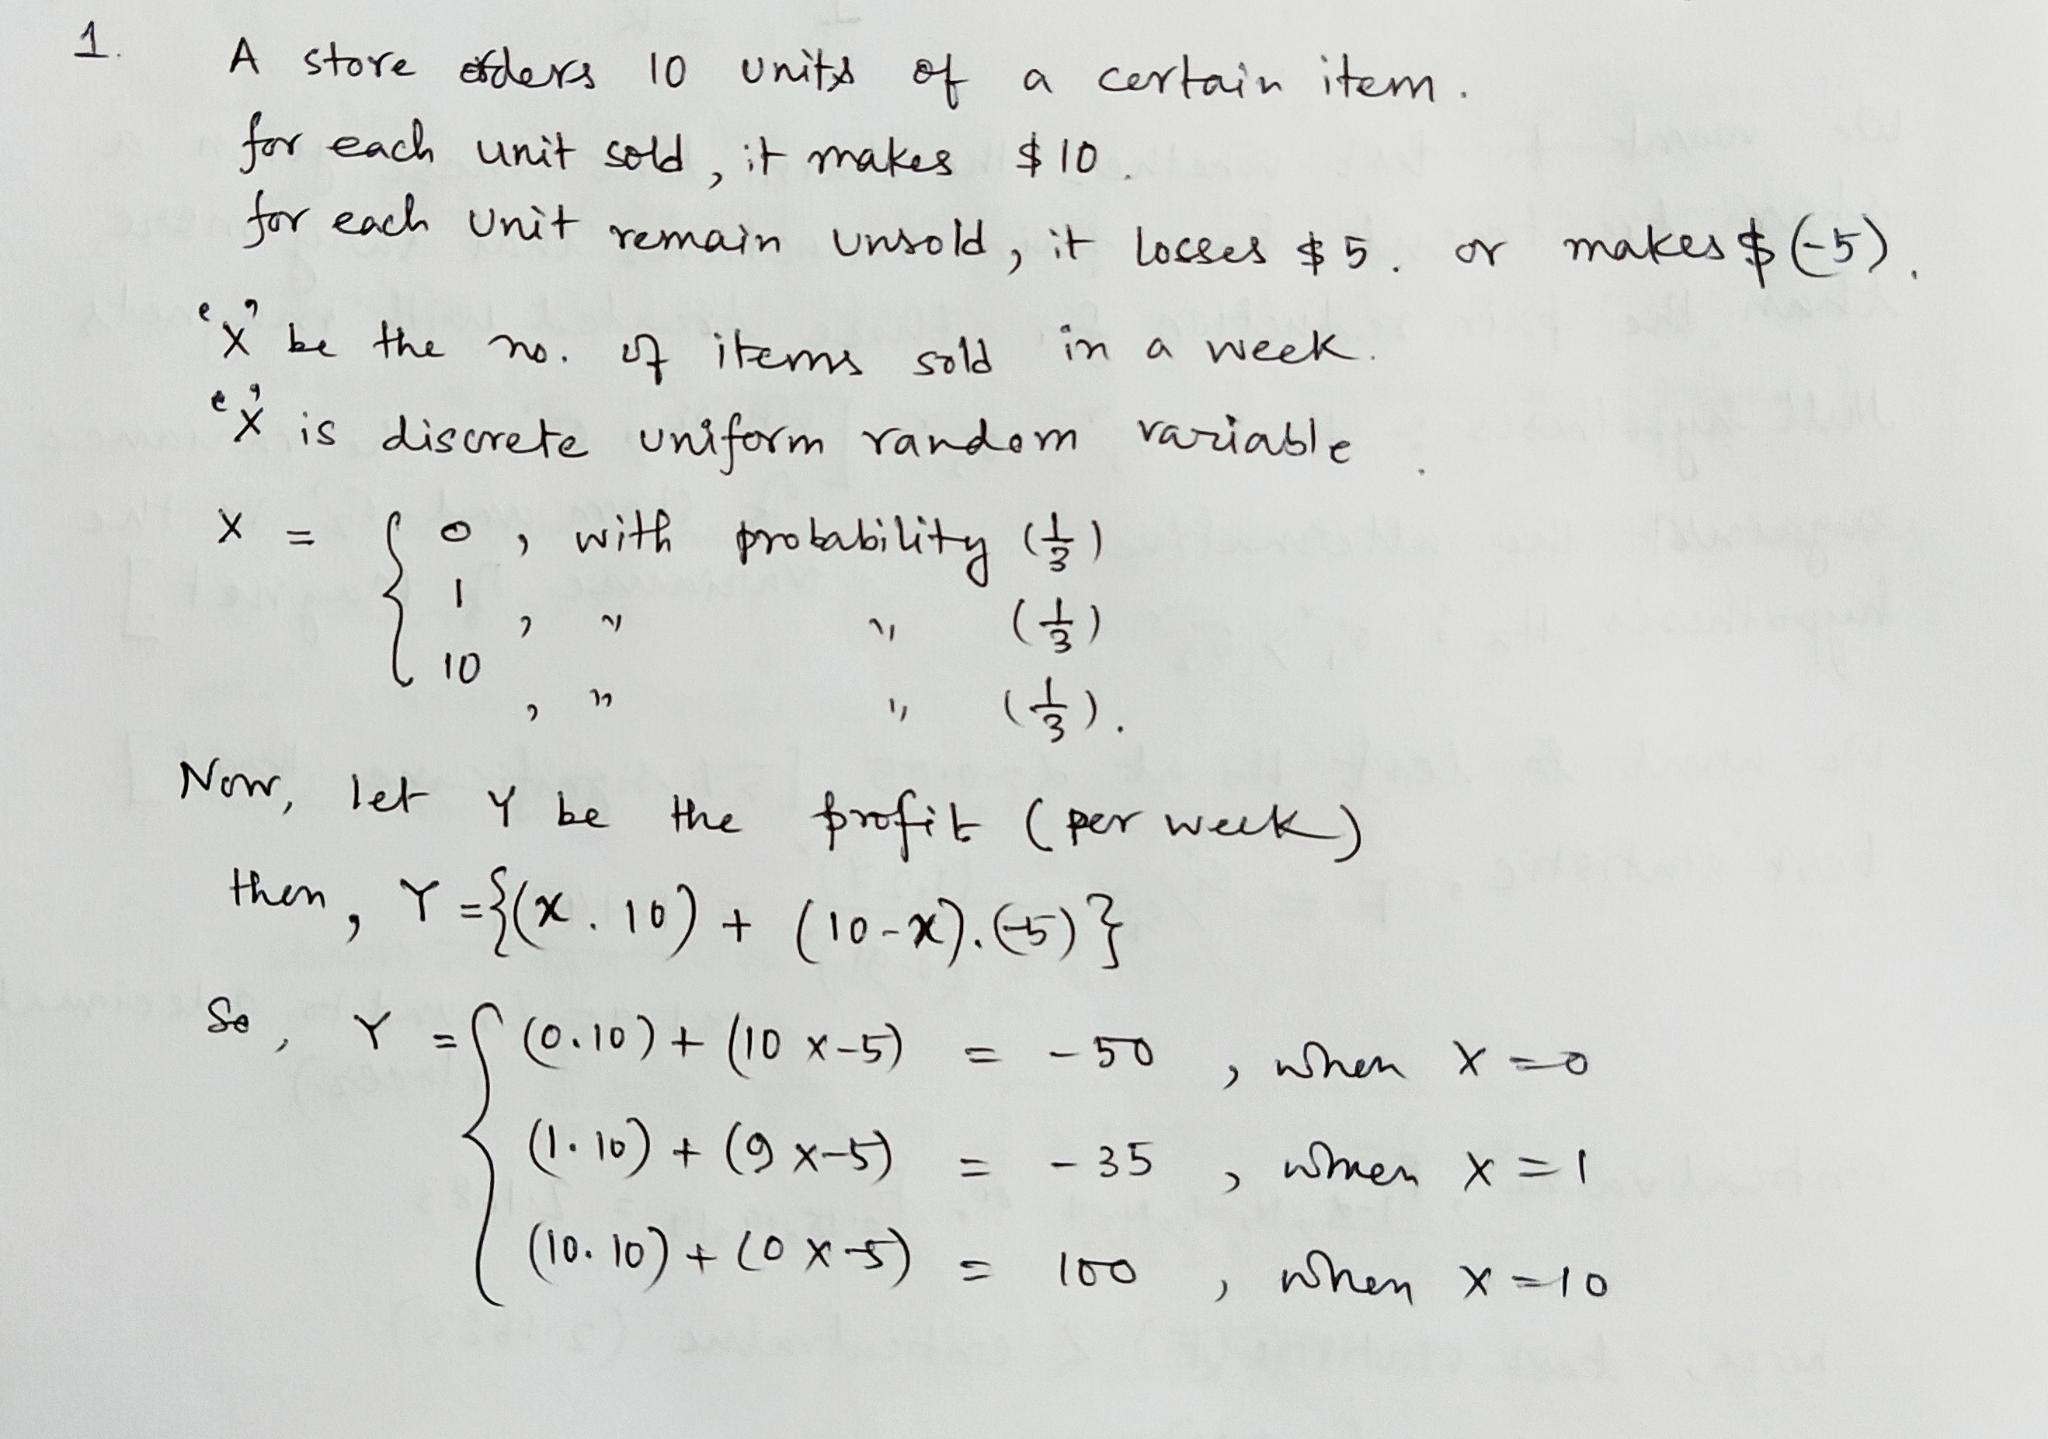 1. A store orders 10 units of a certain item.
for each unit sold, it makes $10.
for each unit remain unsold, it losses $5. or makes $(-5).
'X' be the no. of items sold in a week.
'X' is discrete uniform random variable.
X = { 0, with probability (1/3)
1, " " (1/3)
10, " " (1/3).
Now, let Y be the profit (per week)
then, Y = {(x.10) + (10-x).(-5)}
So, Y = { (0.10) + (10 x-5) = -50, when X=0
(1.10) + (9 x-5) = -35, when X=1
(10.10) + (0 x-5) = 100, when X=10